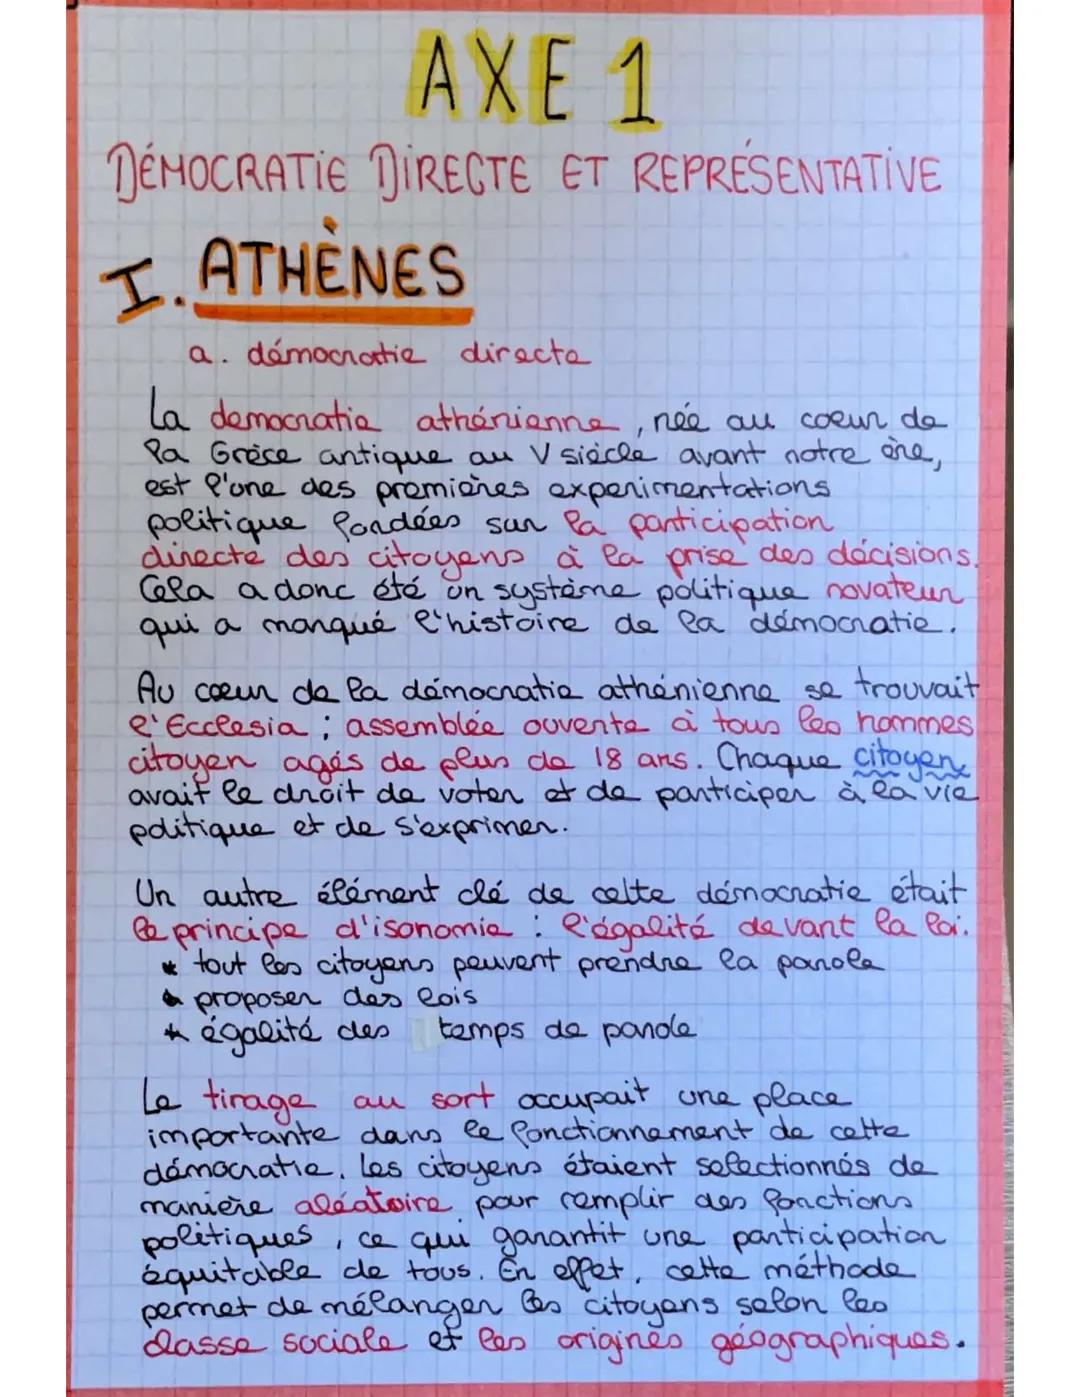 AXE 1
DÉMOCRATIE DIRECTE ET REPRÉSENTATIVE
I. ATHÈNES
a. démocratie directe
La democratie athénienne, née au coeur de
la Grèce antique au V siècle avant notre ère,
est l'une des premières experimentations
politique fondées sur la participation
directe des citoyens à la prise des décisions.
Cela a donc été un système politique novateur
qui a marqué l'histoire de la démocratie.
Au cœur de la démocratie athénienne se trouvait
l'Ecclesia ; assemblée ouverte à tous les hommes
citoyen agés de plus de 18 ans. Chaque citoyen
avait le droit de voter et de participer à la vie
politique et de s'exprimer.
Un autre élément clé de cette démocratie était
le principe d'isonomie : l'égalité devant la loi.
* tout les citoyens peuvent prendre la parole
* proposer des lois
* égalité des temps de parole
Le tirage au sort occupait une place
importante dans le fonctionnement de cette
démocratie. Les citoyens étaient selectionnés de
manière aléatoire pour remplir des fonctions
politiques, ce qui garantit une participation
équitable de tous. En effet, cette méthode
permet de mélanger les citoyens selon les
classe sociale et les origines géographiques.